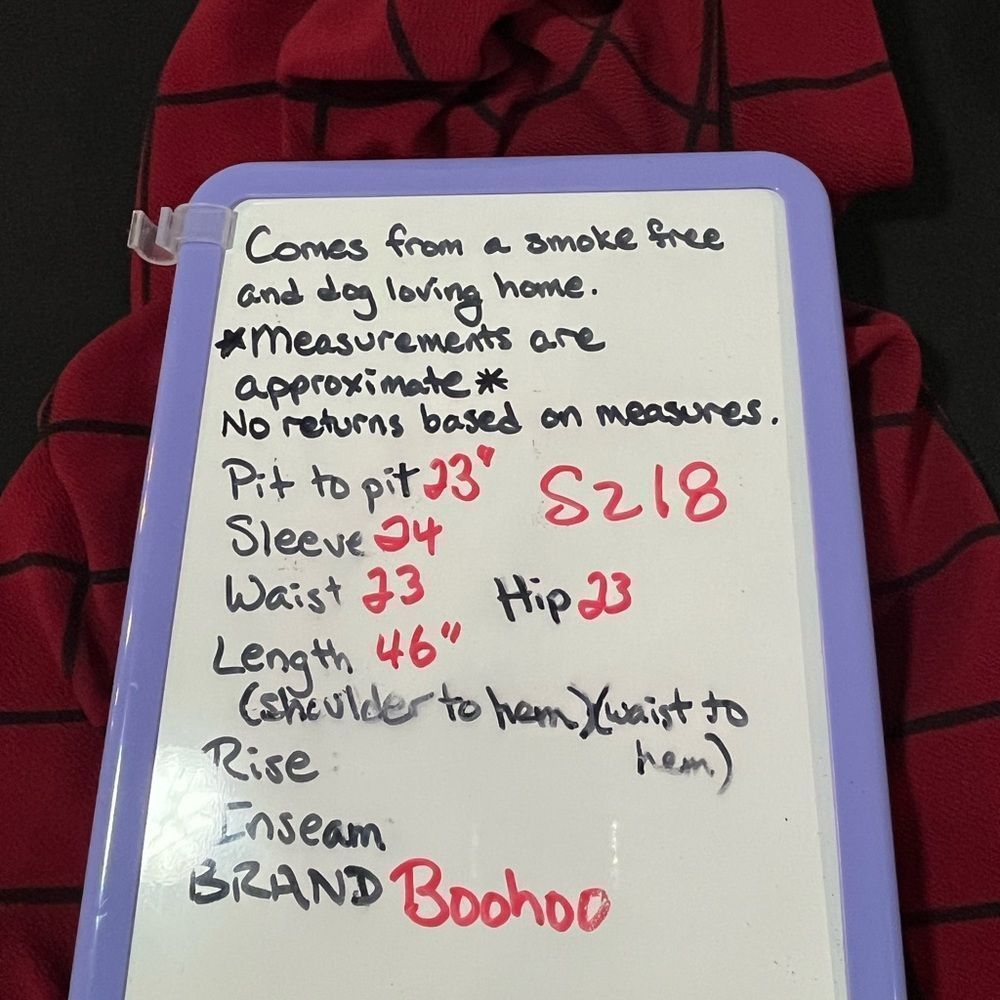 Comes from a smoke free
and dog loving home.
*Measurements are
approximate*
No returns based on measures.
Pit to pit 23" Sz18
Sleeve 24
Waist 23 Hip 23
Length 46"
(shoulder to hem)(waist to
hem)
Rise
Inseam
BRAND Boohoo